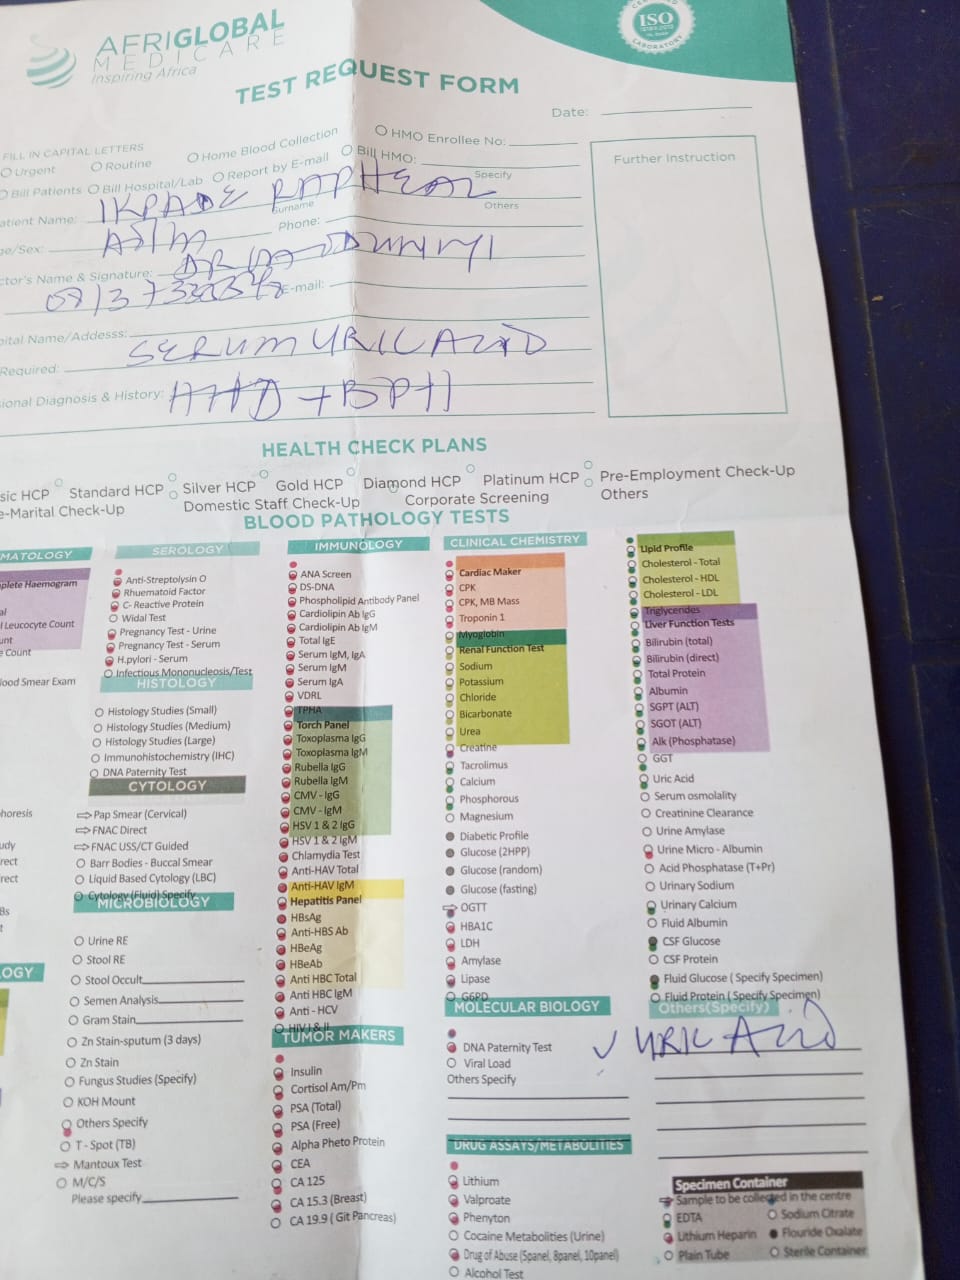 AFRIGLOBAL
MEDICARE
Inspiring Africa
ISO
LABORATORY
TEST REQUEST FORM
Date:
FILL IN CAPITAL LETTERS
Urgent
Routine
Home Blood Collection
HMO Enrollee No:
Bill Patients
Bill Hospital/Lab
Report by E-mail
Bill HMO:
Specify
Further Instruction
atient Name: IKPADE RAPHEAL
Surname
Others
ge/Sex:
Phone:
ctor's Name & Signature:
E-mail:
pital Name/Addesss:
Required: SERUM URIC ACID
ional Diagnosis & History: AHD + BPH
HEALTH CHECK PLANS
sic HCP
Standard HCP
Silver HCP
Gold HCP
Diamond HCP
Platinum HCP
Pre-Employment Check-Up
e-Marital Check-Up
Domestic Staff Check-Up
Corporate Screening
Others
BLOOD PATHOLOGY TESTS
MATOLOGY
plete Haemogram
al
l Leucocyte Count
unt
e Count
lood Smear Exam
horesis
udy
rect
rect
Bs
t
OGY
SEROLOGY
Anti-Streptolysin O
Rhuematoid Factor
C- Reactive Protein
Widal Test
Pregnancy Test - Urine
Pregnancy Test - Serum
H.pylori - Serum
Infectious Mononucleosis/Test
HISTOLOGY
Histology Studies (Small)
Histology Studies (Medium)
Histology Studies (Large)
Immunohistochemistry (IHC)
DNA Paternity Test
CYTOLOGY
Pap Smear (Cervical)
FNAC Direct
FNAC USS/CT Guided
Barr Bodies - Buccal Smear
Liquid Based Cytology (LBC)
Cytology (Fluid) Specify
MICROBIOLOGY
Urine RE
Stool RE
Stool Occult
Semen Analysis
Gram Stain
Zn Stain-sputum (3 days)
Zn Stain
Fungus Studies (Specify)
KOH Mount
Others Specify
T - Spot (TB)
Mantoux Test
M/C/S
Please specify
IMMUNOLOGY
ANA Screen
DS-DNA
Phospholipid Antibody Panel
Cardiolipin Ab IgG
Cardiolipin Ab IgM
Total IgE
Serum IgM, IgA
Serum IgM
Serum IgA
VDRL
TPHA
Torch Panel
Toxoplasma IgG
Toxoplasma IgM
Rubella IgG
Rubella IgM
CMV - IgG
CMV - IgM
HSV 1 & 2 IgG
HSV 1 & 2 IgM
Chlamydia Test
Anti-HAV Total
Anti-HAV IgM
Hepatitis Panel
HBsAg
Anti-HBS Ab
HBeAg
HBeAb
Anti HBC Total
Anti HBC IgM
Anti - HCV
HIV I & II
TUMOR MAKERS
Insulin
Cortisol Am/Pm
PSA (Total)
PSA (Free)
Alpha Pheto Protein
CEA
CA 125
CA 15.3 (Breast)
CA 19.9 ( Git Pancreas)
CLINICAL CHEMISTRY
Cardiac Maker
CPK
CPK, MB Mass
Troponin 1
Myoglobin
Renal Function Test
Sodium
Potassium
Chloride
Bicarbonate
Urea
Creatine
Tacrolimus
Calcium
Phosphorous
Magnesium
Diabetic Profile
Glucose (2HPP)
Glucose (random)
Glucose (fasting)
OGTT
HBA1C
LDH
Amylase
Lipase
G6PD
MOLECULAR BIOLOGY
DNA Paternity Test
Viral Load
Others Specify
DRUG ASSAYS/METABOLITIES
Lithium
Valproate
Phenyton
Cocaine Metabolities (Urine)
Drug of Abuse (5panel, 8panel, 10panel)
Alcohol Test
Lipid Profile
Cholesterol - Total
Cholesterol - HDL
Cholesterol - LDL
Triglycerides
Liver Function Tests
Bilirubin (total)
Bilirubin (direct)
Total Protein
Albumin
SGPT (ALT)
SGOT (ALT)
Alk (Phosphatase)
GGT
Uric Acid
Serum osmolality
Creatinine Clearance
Urine Amylase
Urine Micro - Albumin
Acid Phosphatase (T+Pr)
Urinary Sodium
Urinary Calcium
Fluid Albumin
CSF Glucose
CSF Protein
Fluid Glucose ( Specify Specimen)
Fluid Protein ( Specify Specimen)
Others(Specify)
✓ URIC ACID
Specimen Container
Sample to be collected in the centre
EDTA
Sodium Citrate
Lithium Heparin
Flouride Oxalate
Plain Tube
Sterile Container